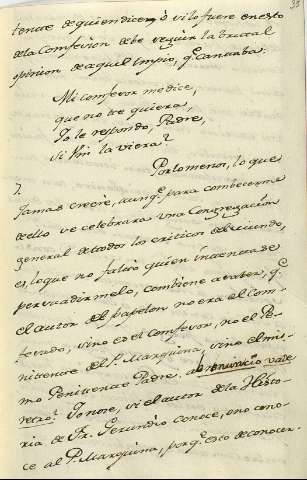 33
tenor de quien dicen, ô vilo fuere en esto
de la Comfesion debe seguir la brutal
opinion de aquel impio, q.e cantaba.
Mi comfesor me dice,
que no te quiera,
Yo le respondo, Padre,
si Vm la viera?
Por lo menos, lo que
7.
Jamas creeré, aunq.e para combecerme
de ello se celebrara una Congregacion
general de todos los criticos del mundo,
es, lo que no faltó quien intentase
persuadirmelo, combiene a saber, q.e
el autor del papelon no era el Com-
fesado, sino es el Comfesor, no el Pe-
nitente del P. Marquina, sino el mis-
mo Penitente Padre. abrenuncio vade
retro. Ignoro, si el autor de la Histo-
ria de Fr. Gerundio conoce, o no cono-
ce al P. Marquina, porq.e esto de conocer